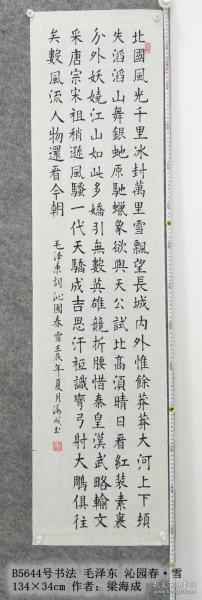 北國風光千里冰封萬里雪飄望長城內外惟餘莽莽大河上下頓
失滔滔山舞銀虵原馳蠟象欲與天公試比高須晴日看紅裝素裹
分外妖嬈江山如此多嬌引無數英雄競折腰惜秦皇漢武略輸文
采唐宗宋祖稍遜風騷一代天驕成吉思汗祗識彎弓射大鵰俱往
矣數風流人物還看今朝
毛泽東詞沁園春雪壬辰年夏月海成书
B5644号书法 毛泽东 沁园春·雪
134×34cm 作者：梁海成